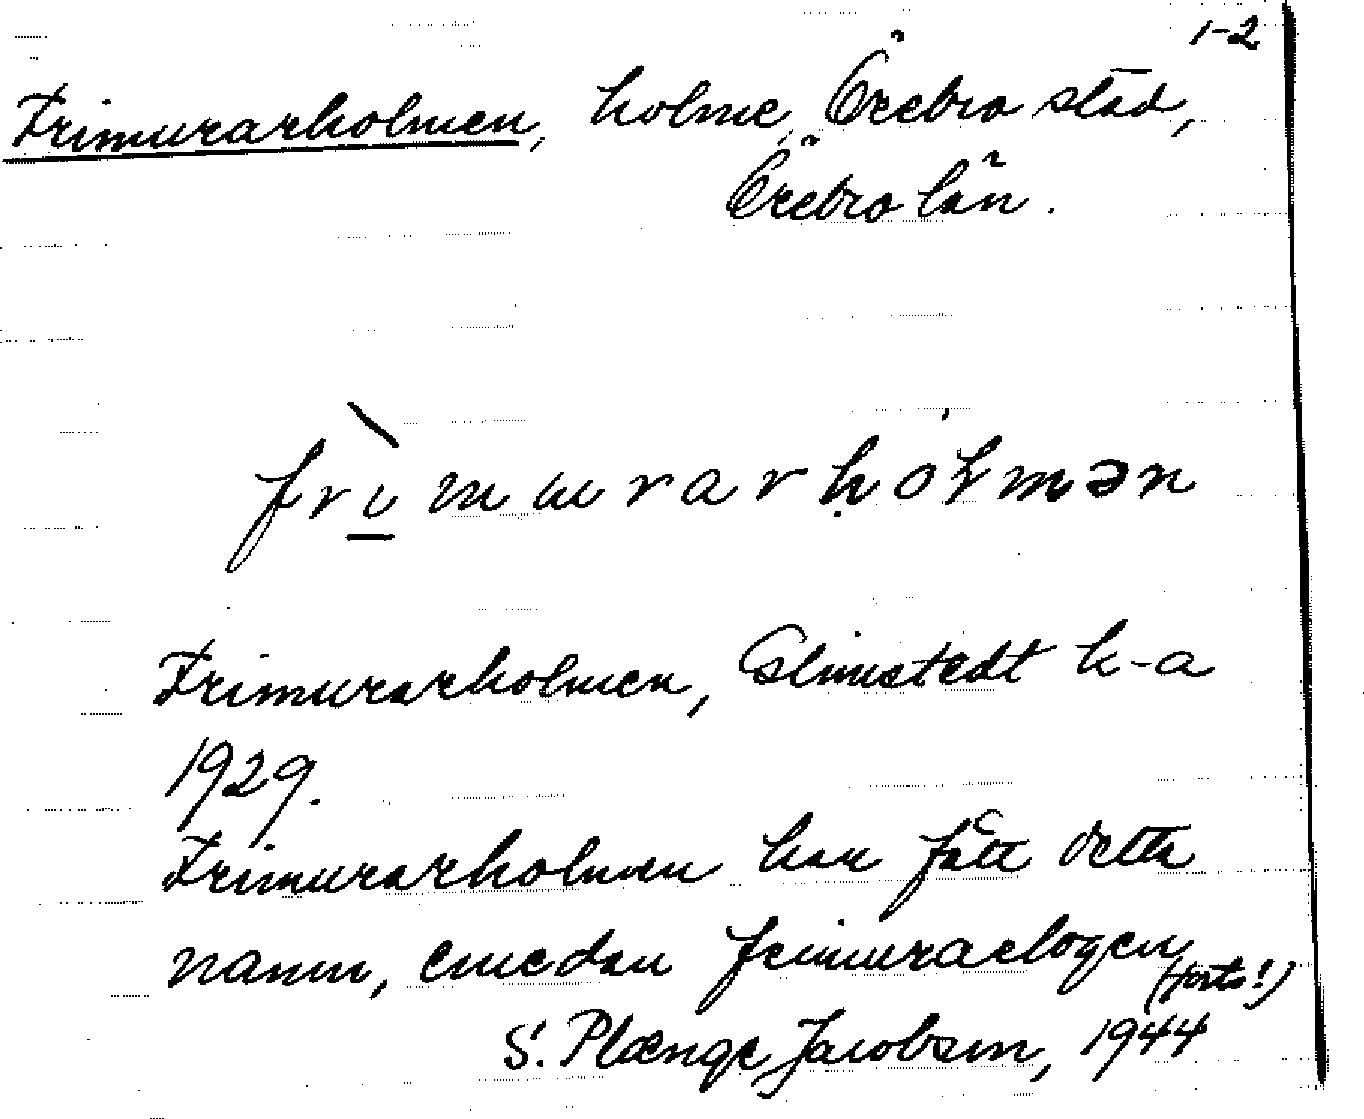 1-2
Frimurarholmen, holme, Örebro stad,
Örebro län.
frimurarhólmən
Frimurarholmen, Almstedt k-a
1929.
Frimurarholmen har fått detta
namn, emedan frimurarelogen
(forts!)
S. Plænge Jacobsen, 1944